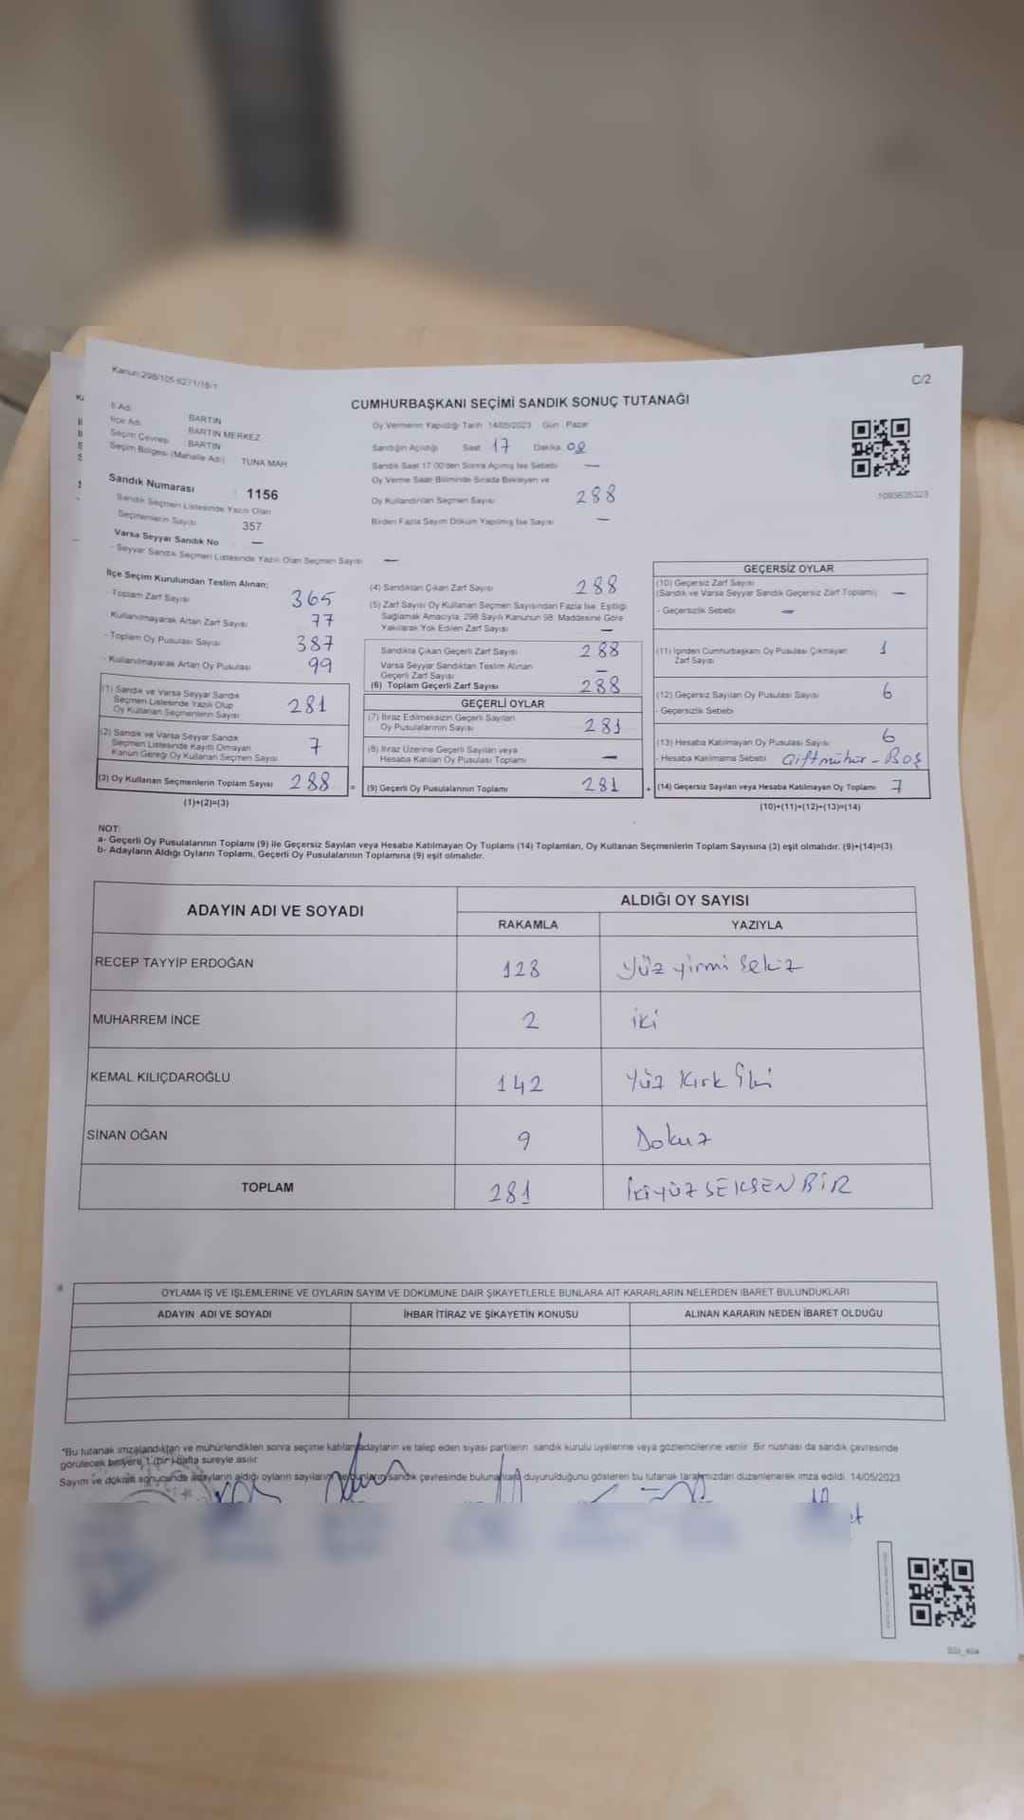 Kanun:298/105 6271/18/1
C/2
CUMHURBAŞKANI SEÇİMİ SANDIK SONUÇ TUTANAĞI
İl Adı BARTIN
İlçe Adı BARTIN MERKEZ
Seçim Çevresi BARTIN
Seçim Bölgesi (Mahalle Adı) TUNA MAH
Sandık Numarası 1156
Sandık Seçmen Listesinde Yazılı Olan
Seçmenlerin Sayısı 357
Varsa Seyyar Sandık No —
- Seyyar Sandık Seçmen Listesinde Yazılı Olan Seçmen Sayısı —
Oy Vermenin Yapıldığı Tarih 14/05/2023 Gün Pazar
Sandığın Açıldığı Saat 17 Dakika 08
Sandık Saat 17.00'den Sonra Açılmış İse Sebebi —
Oy Verme Saati Bitiminde Sırada Bekleyen ve
Oy Kullandırılan Seçmen Sayısı 288
Birden Fazla Sayım Döküm Yapılmış İse Sayısı —
1093635323
İlçe Seçim Kurulundan Teslim Alınan;
- Toplam Zarf Sayısı 365
- Kullanılmayarak Artan Zarf Sayısı 77
- Toplam Oy Pusulası Sayısı 387
- Kullanılmayarak Artan Oy Pusulası 99
(1) Sandık ve Varsa Seyyar Sandık
Seçmen Listesinde Yazılı Olup
Oy Kullanan Seçmenlerin Sayısı 281
(2) Sandık ve Varsa Seyyar Sandık
Seçmen Listesinde Kayıtlı Olmayan
Kanun Gereği Oy Kullanan Seçmen Sayısı 7
(3) Oy Kullanan Seçmenlerin Toplam Sayısı 288
(1)+(2)=(3)
(4) Sandıktan Çıkan Zarf Sayısı 288
(5) Zarf Sayısı Oy Kullanan Seçmen Sayısından Fazla İse, Eşitliği
Sağlamak Amacıyla; 298 Sayılı Kanunun 98. Maddesine Göre
Yakılarak Yok Edilen Zarf Sayısı —
Sandıkta Çıkan Geçerli Zarf Sayısı 288
Varsa Seyyar Sandıktan Teslim Alınan
Geçerli Zarf Sayısı —
(6) Toplam Geçerli Zarf Sayısı 288
GEÇERLİ OYLAR
(7) İtiraz Edilmeksizin Geçerli Sayılan
Oy Pusulalarının Sayısı 281
(8) İtiraz Üzerine Geçerli Sayılan veya
Hesaba Katılan Oy Pusulası Toplamı —
(9) Geçerli Oy Pusulalarının Toplamı 281
GEÇERSİZ OYLAR
(10) Geçersiz Zarf Sayısı
(Sandık ve Varsa Seyyar Sandık Geçersiz Zarf Toplamı) —
- Geçersizlik Sebebi —
(11) İçinden Cumhurbaşkanı Oy Pusulası Çıkmayan
Zarf Sayısı 1
(12) Geçersiz Sayılan Oy Pusulası Sayısı 6
- Geçersizlik Sebebi
(13) Hesaba Katılmayan Oy Pusulası Sayısı 6
- Hesaba Katılmama Sebebi Çift mühür - Boş
(14) Geçersiz Sayılan veya Hesaba Katılmayan Oy Toplamı 7
(10)+(11)+(12)+(13)=(14)
NOT:
a- Geçerli Oy Pusulalarının Toplamı (9) ile Geçersiz Sayılan veya Hesaba Katılmayan Oy Toplamı (14) Toplamları, Oy Kullanan Seçmenlerin Toplam Sayısına (3) eşit olmalıdır. (9)+(14)=(3)
b- Adayların Aldığı Oyların Toplamı, Geçerli Oy Pusulalarının Toplamına (9) eşit olmalıdır.
ADAYIN ADI VE SOYADI
ALDIĞI OY SAYISI
RAKAMLA YAZIYLA
RECEP TAYYİP ERDOĞAN 128 Yüz yirmi sekiz
MUHARREM İNCE 2 iki
KEMAL KILIÇDAROĞLU 142 Yüz Kırk İki
SİNAN OĞAN 9 Dokuz
TOPLAM 281 İKİYÜZ SEKSEN BİR
OYLAMA İŞ VE İŞLEMLERİNE VE OYLARIN SAYIM VE DÖKÜMÜNE DAİR ŞİKAYETLERLE BUNLARA AİT KARARLARIN NELERDEN İBARET BULUNDUKLARI
ADAYIN ADI VE SOYADI İHBAR İTİRAZ VE ŞİKAYETİN KONUSU ALINAN KARARIN NEDEN İBARET OLDUĞU
*Bu tutanak imzalandıktan ve mühürlendikten sonra seçime katılan adayların ve talep eden siyasi partilerin sandık kurulu üyelerine veya gözlemcilerine verilir. Bir nüshası da sandık çevresinde
görülecek biryere 1 (bir) hafta süreyle asılır.
Sayım ve döküm sonucunda adayların aldığı oyların sayıların sandık çevresinde duyurulduğunu gösteren bu tutanak tarafımızdan düzenlenerek imza edildi. 14/05/2023